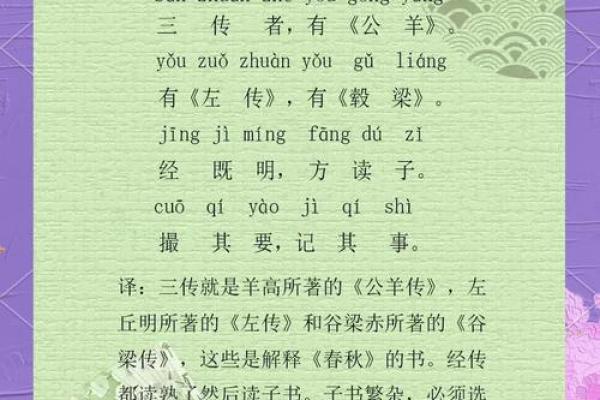 三 传 者，有 《公 羊》。
yǒu zuǒ zhuàn yǒu gǔ liáng
有《左 传》，有《毂 梁》。
jīng jì míng fāng dú zǐ
经 既 明， 方 读 子。
cuō qí yào jì qí shì
撮 其 要，记 其 事。
译：三传就是羊高所著的《公羊传》，左
丘明所著的《左传》和谷梁赤所著的《谷
梁传》，这些是解释《春秋》的书。经传
都读熟了然后读子书。子书繁杂，必须选